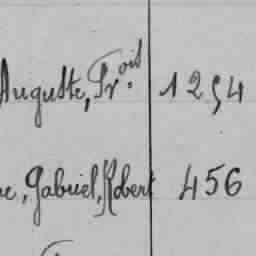 Auguste, Fr.ois 1254
Gabriel, Robert 456